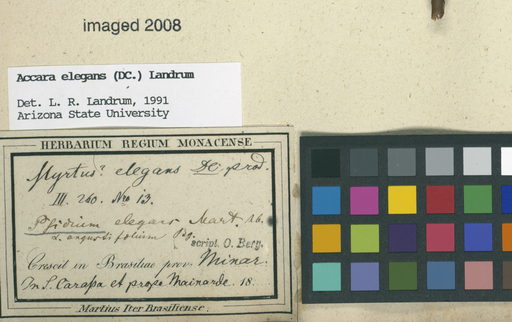 imaged 2008
Accara elegans (DC.) Landrum
Det. L. R. Landrum, 1991
Arizona State University
HERBARIUM REGIUM MONACENSE
Myrtus? elegans DC prod.
III. 240. Nro 13.
Psidium elegans Mart. Hb.
angustifolium
script. O. Berg.
Crescit in Brasiliae prov. Minar.
In S. Carapa et prope Mainarde. 18
Martius Iter Brasiliense.